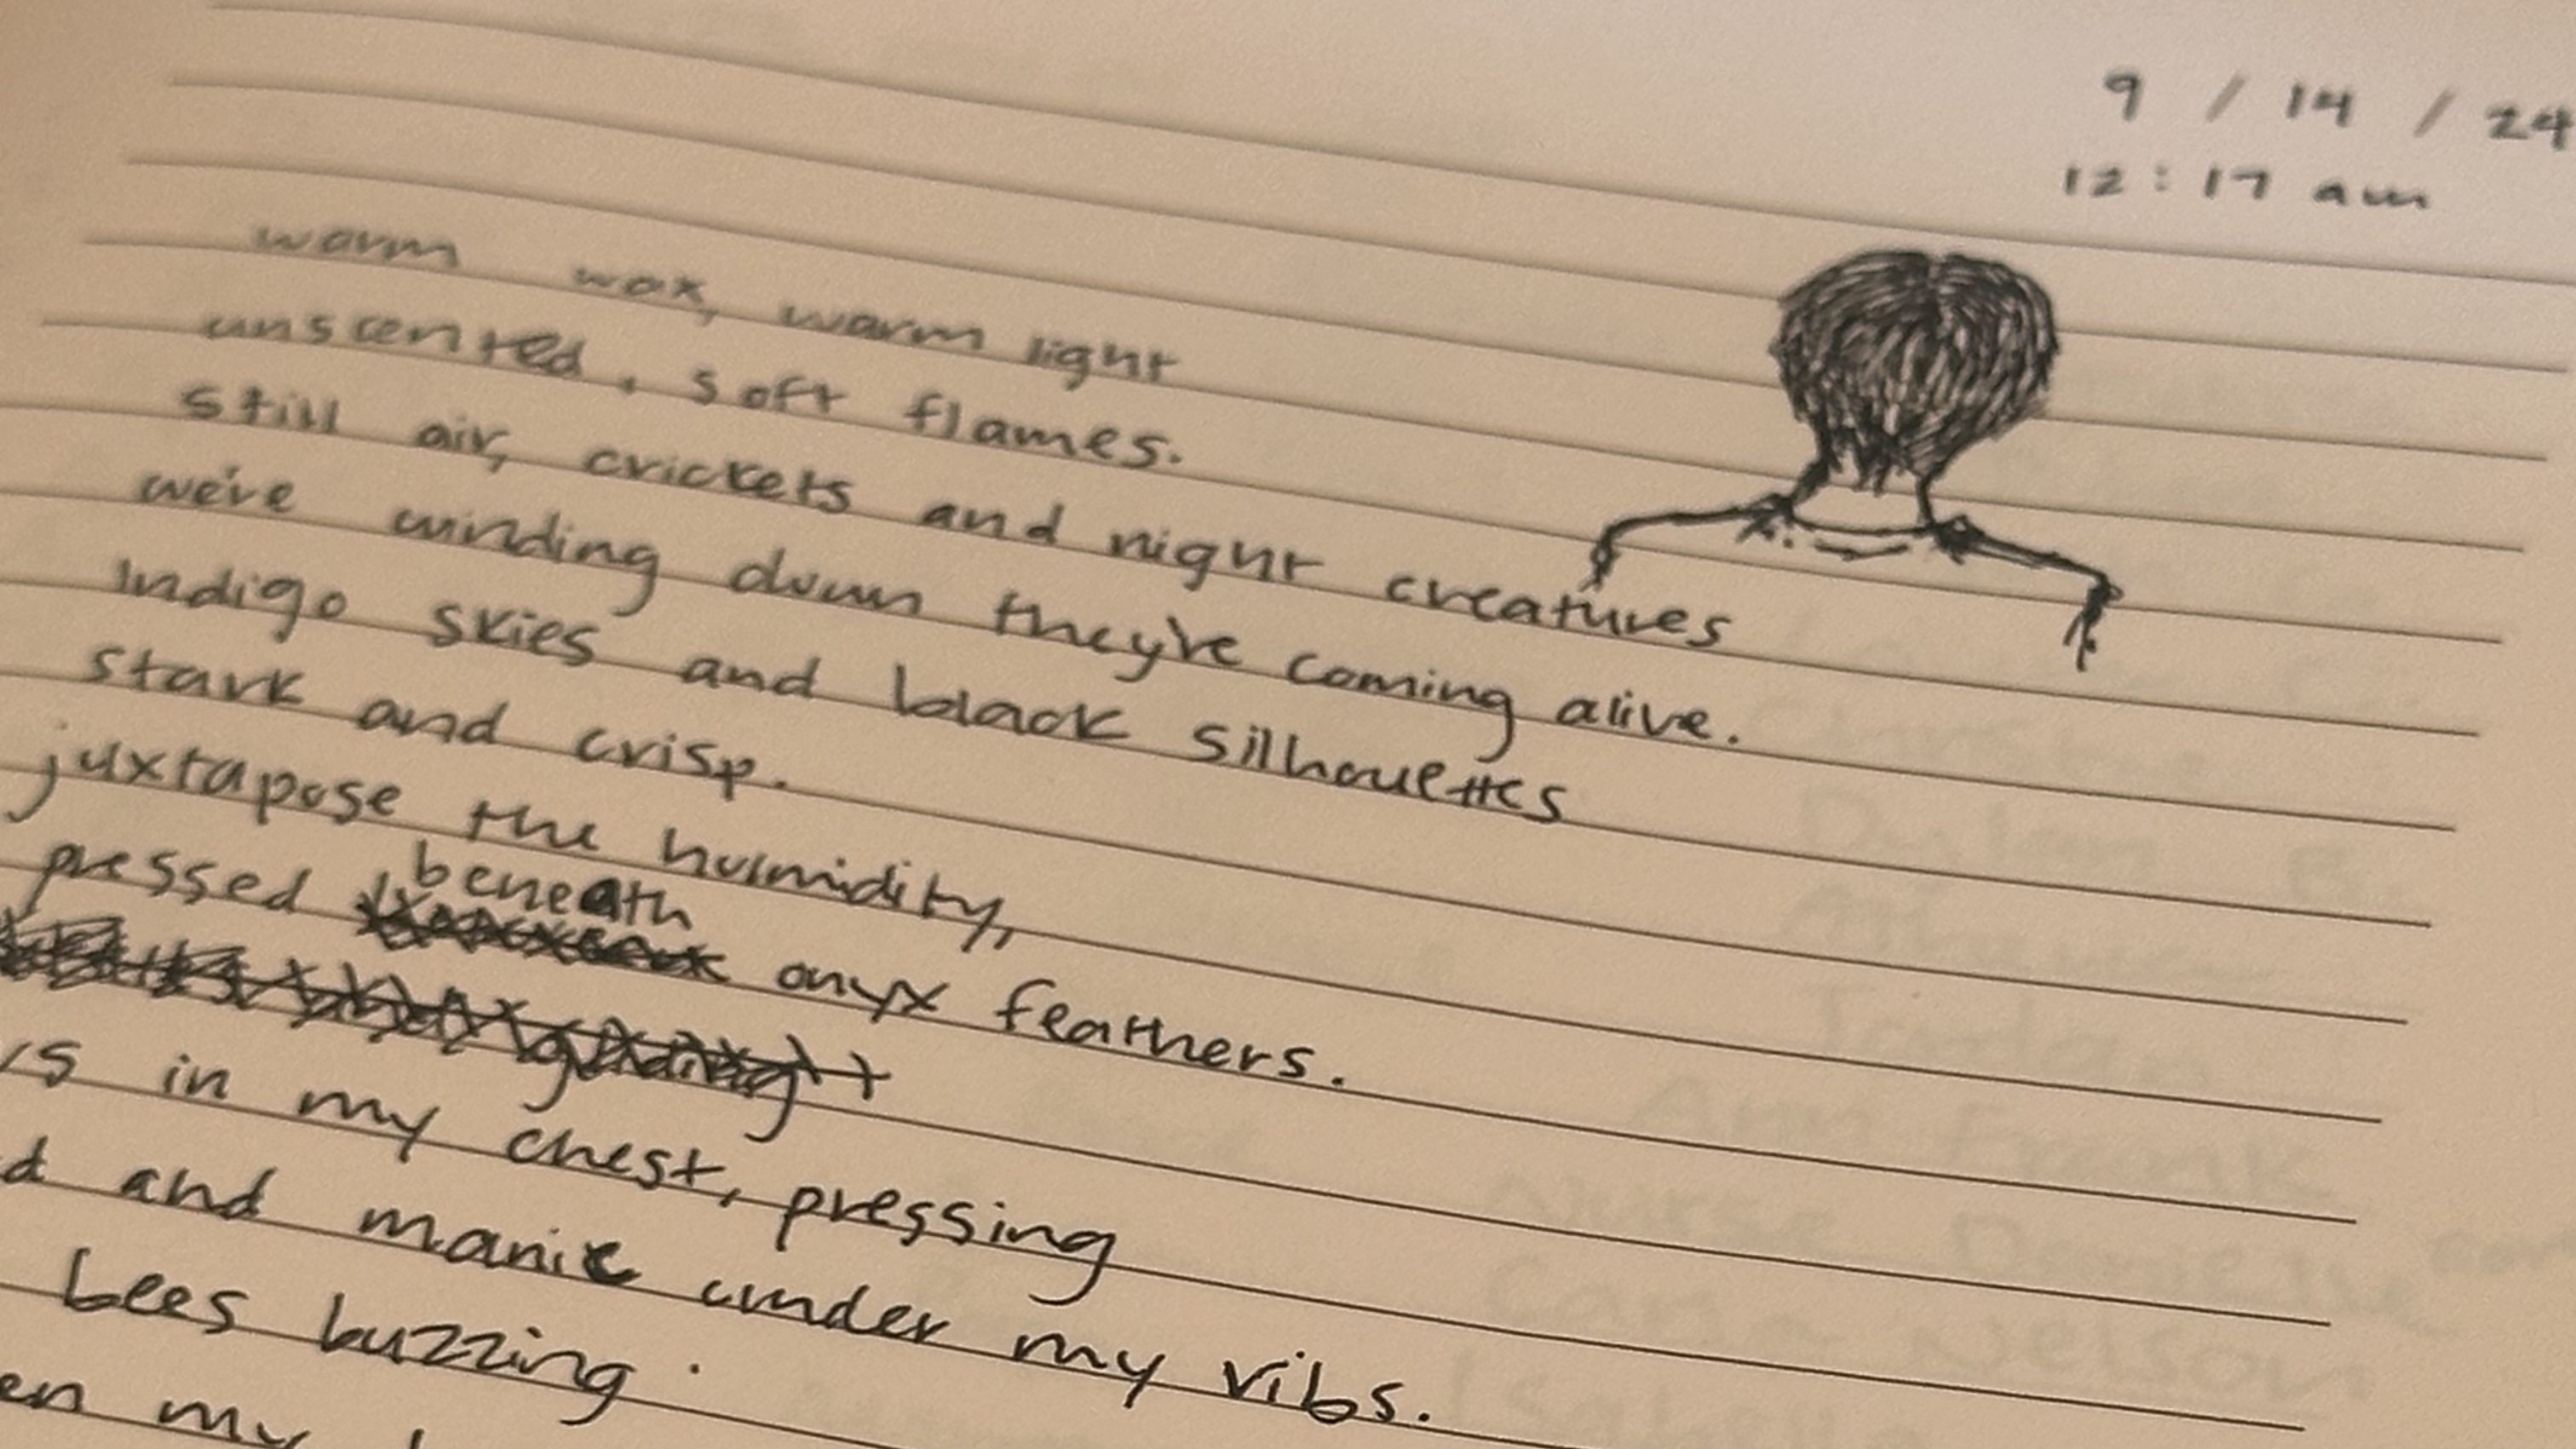 9 / 14 / 24
12:17 am
warm wax, warm light
unscented, soft flames.
still air, crickets and night creatures
we're winding down they're coming alive.
Indigo skies and black silhouettes
stark and crisp.
juxtapose the humidity,
pressed beneath onyx feathers.
in my chest, pressing
and manic under my ribs.
bees buzzing.
my